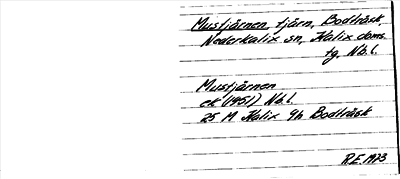 Mustjärnen, tjärn, Bodträsk,
Nederkalix sn, Kalix doms.
tg, Nb.l.
Mustjärnen
ek (1951) Nb.l.
25 M Kalix 9h Bodträsk
R.E. 1973